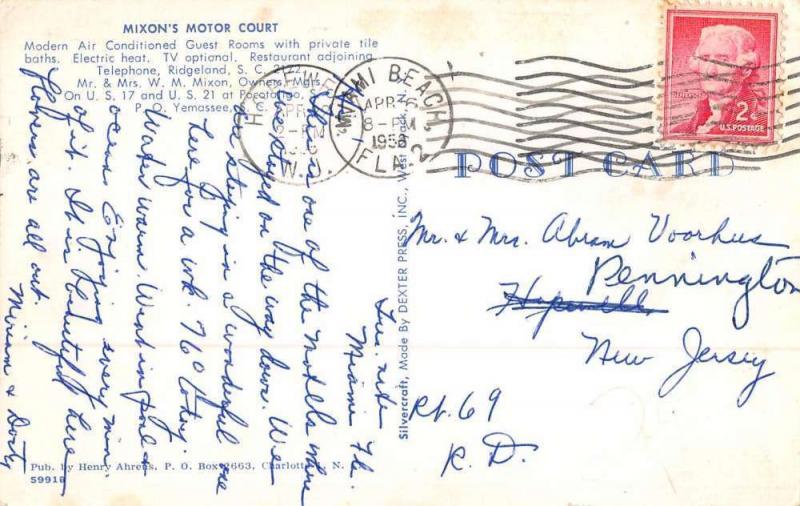 MIXON'S MOTOR COURT
Modern Air Conditioned Guest Rooms with private tile
baths. Electric heat. TV optional. Restaurant adjoining.
Telephone, Ridgeland, S. C.
Mr. & Mrs. W. M. Mixon, Owners, Mgrs.
On U. S. 17 and U. S. 21 at Pocotaligo, S.
P. O. Yemassee, S. C.
Tues. nite
Miami Fla.
This is one of the Motels where
we stayed on the way down. We
are staying in a wonderful one
here for a wk. 76° today.
Water warm. Went in pool &
ocean. Enjoying every min.
of it. It is beautiful here
flowers are all out.
Miriam & Doctor
MIAMI BEACH,
APR 6
8-PM
1958
FLA. 2
2¢
U.S. POSTAGE
POST CARD
Mr. & Mrs. Abram Voorhus
Pennington
Hopewell
New Jersey
Rt. 69
R. D.
Silvercraft, Made By DEXTER PRESS, INC., West Nyack, N.
Pub. by Henry Ahrens, P. O. Box 2663, Charlotte, N.
59918